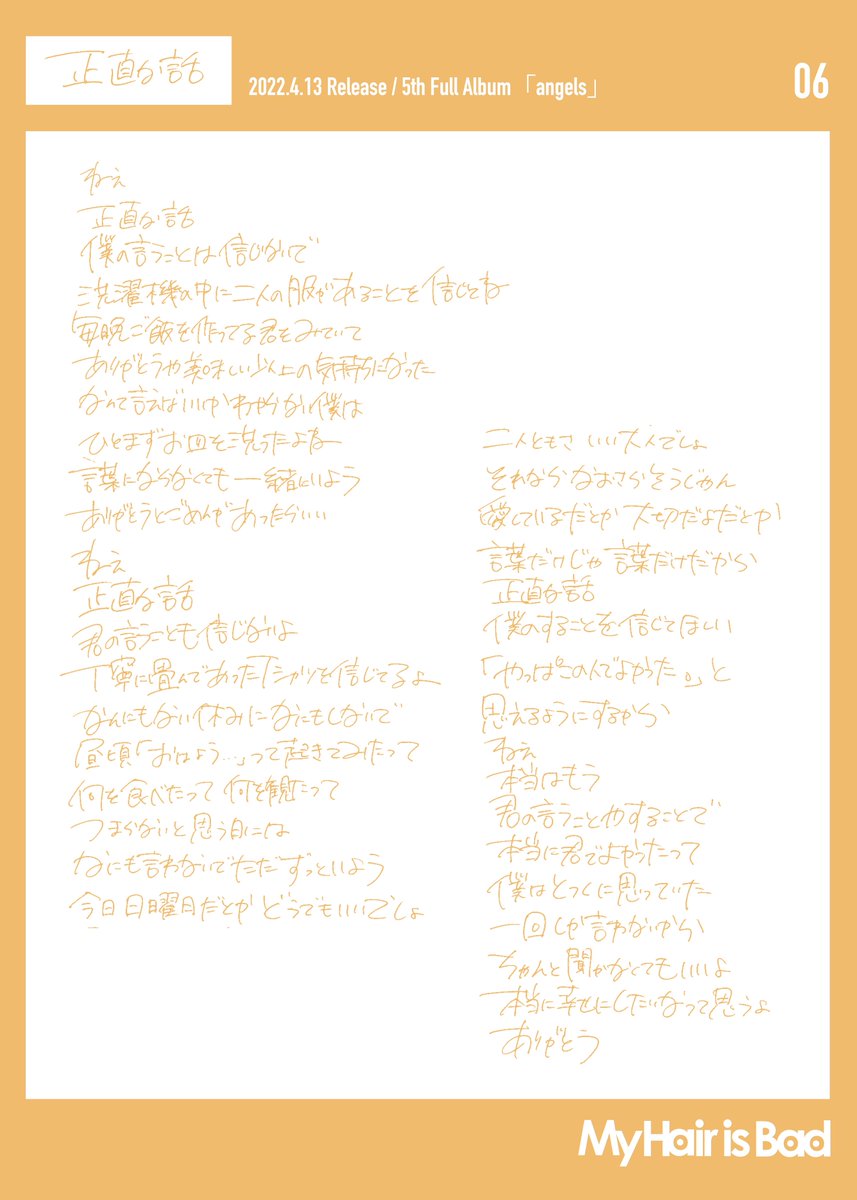 正直な話
2022.4.13 Release / 5th Full Album 「angels」
06
ねえ
正直な話
僕の言うことは信じないで
洗濯機の中に二人の服があることを信じてね
毎晩ご飯を作ってる君をみていて
ありがとうや美味しい以上の気持ちになった
なんて言えばいいかわからない僕は
ひとまずお皿を洗ったよね
言葉にならなくても一緒にいよう
ありがとうとごめんがあったらいい
ねえ
正直な話
君の言うことも信じないよ
丁寧に畳んであったTシャツを信じてるよ
なんにもない休みになにもしないで
昼頃「おはよう…」って起きてみたって
何を食べたって 何を観たって
つまらないと思う日には
なにも言わないでただずっといよう
今日日曜日だとかどうでもいいでしょ
二人ともさ いい大人でしょ
それならなおさらそうじゃん
愛しているだとか 大切だよだとか
言葉だけじゃ 言葉だけだから
正直な話
僕のすることを信じてほしい
「やっぱこの人でよかった。」と
思えるようにするから
ねえ
本当はもう
君の言うことやすることで
本当に君でよかったって
僕はとっくに思っていた
一回しか言わないから
ちゃんと聞かなくてもいいよ
本当に幸せにしたいなって思うよ
ありがとう
My Hair is Bad